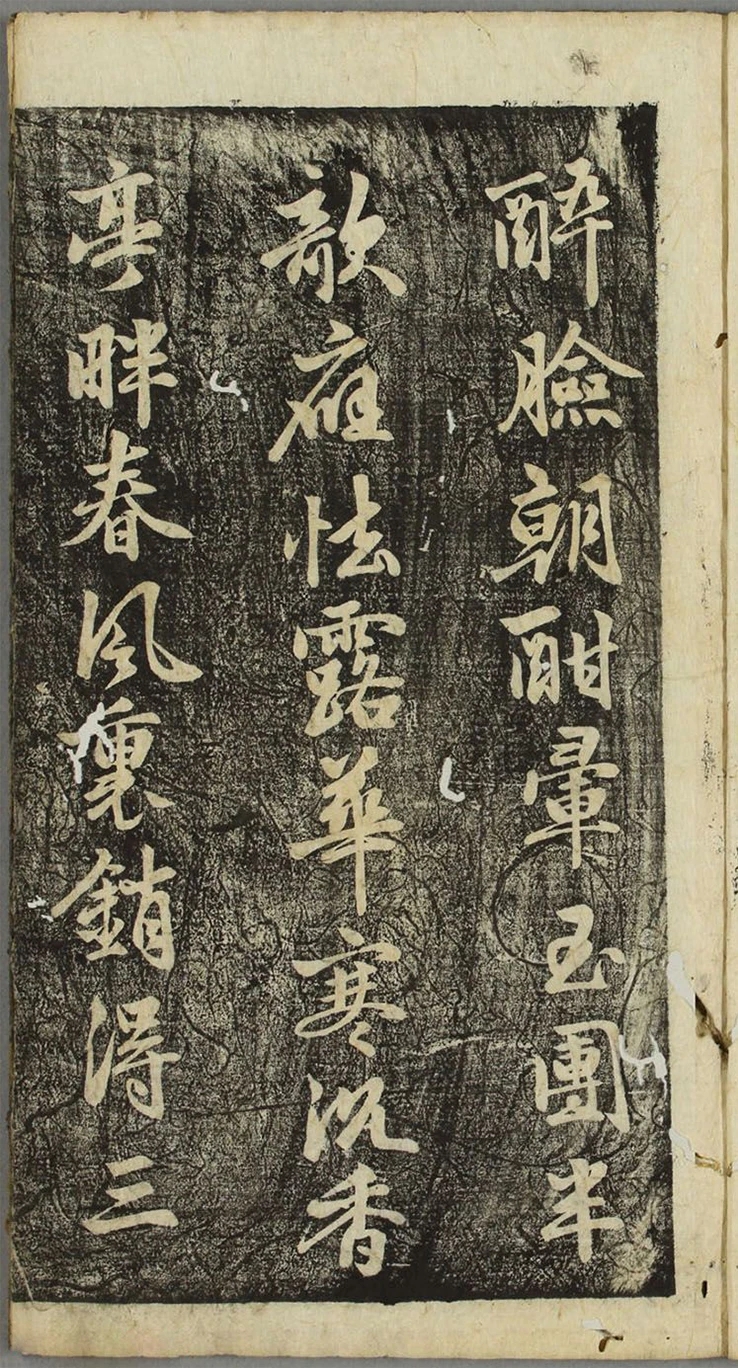 酔臉朝酣暈玉團半
歌應怯露華寒沉香
亭畔春風裏銷得三